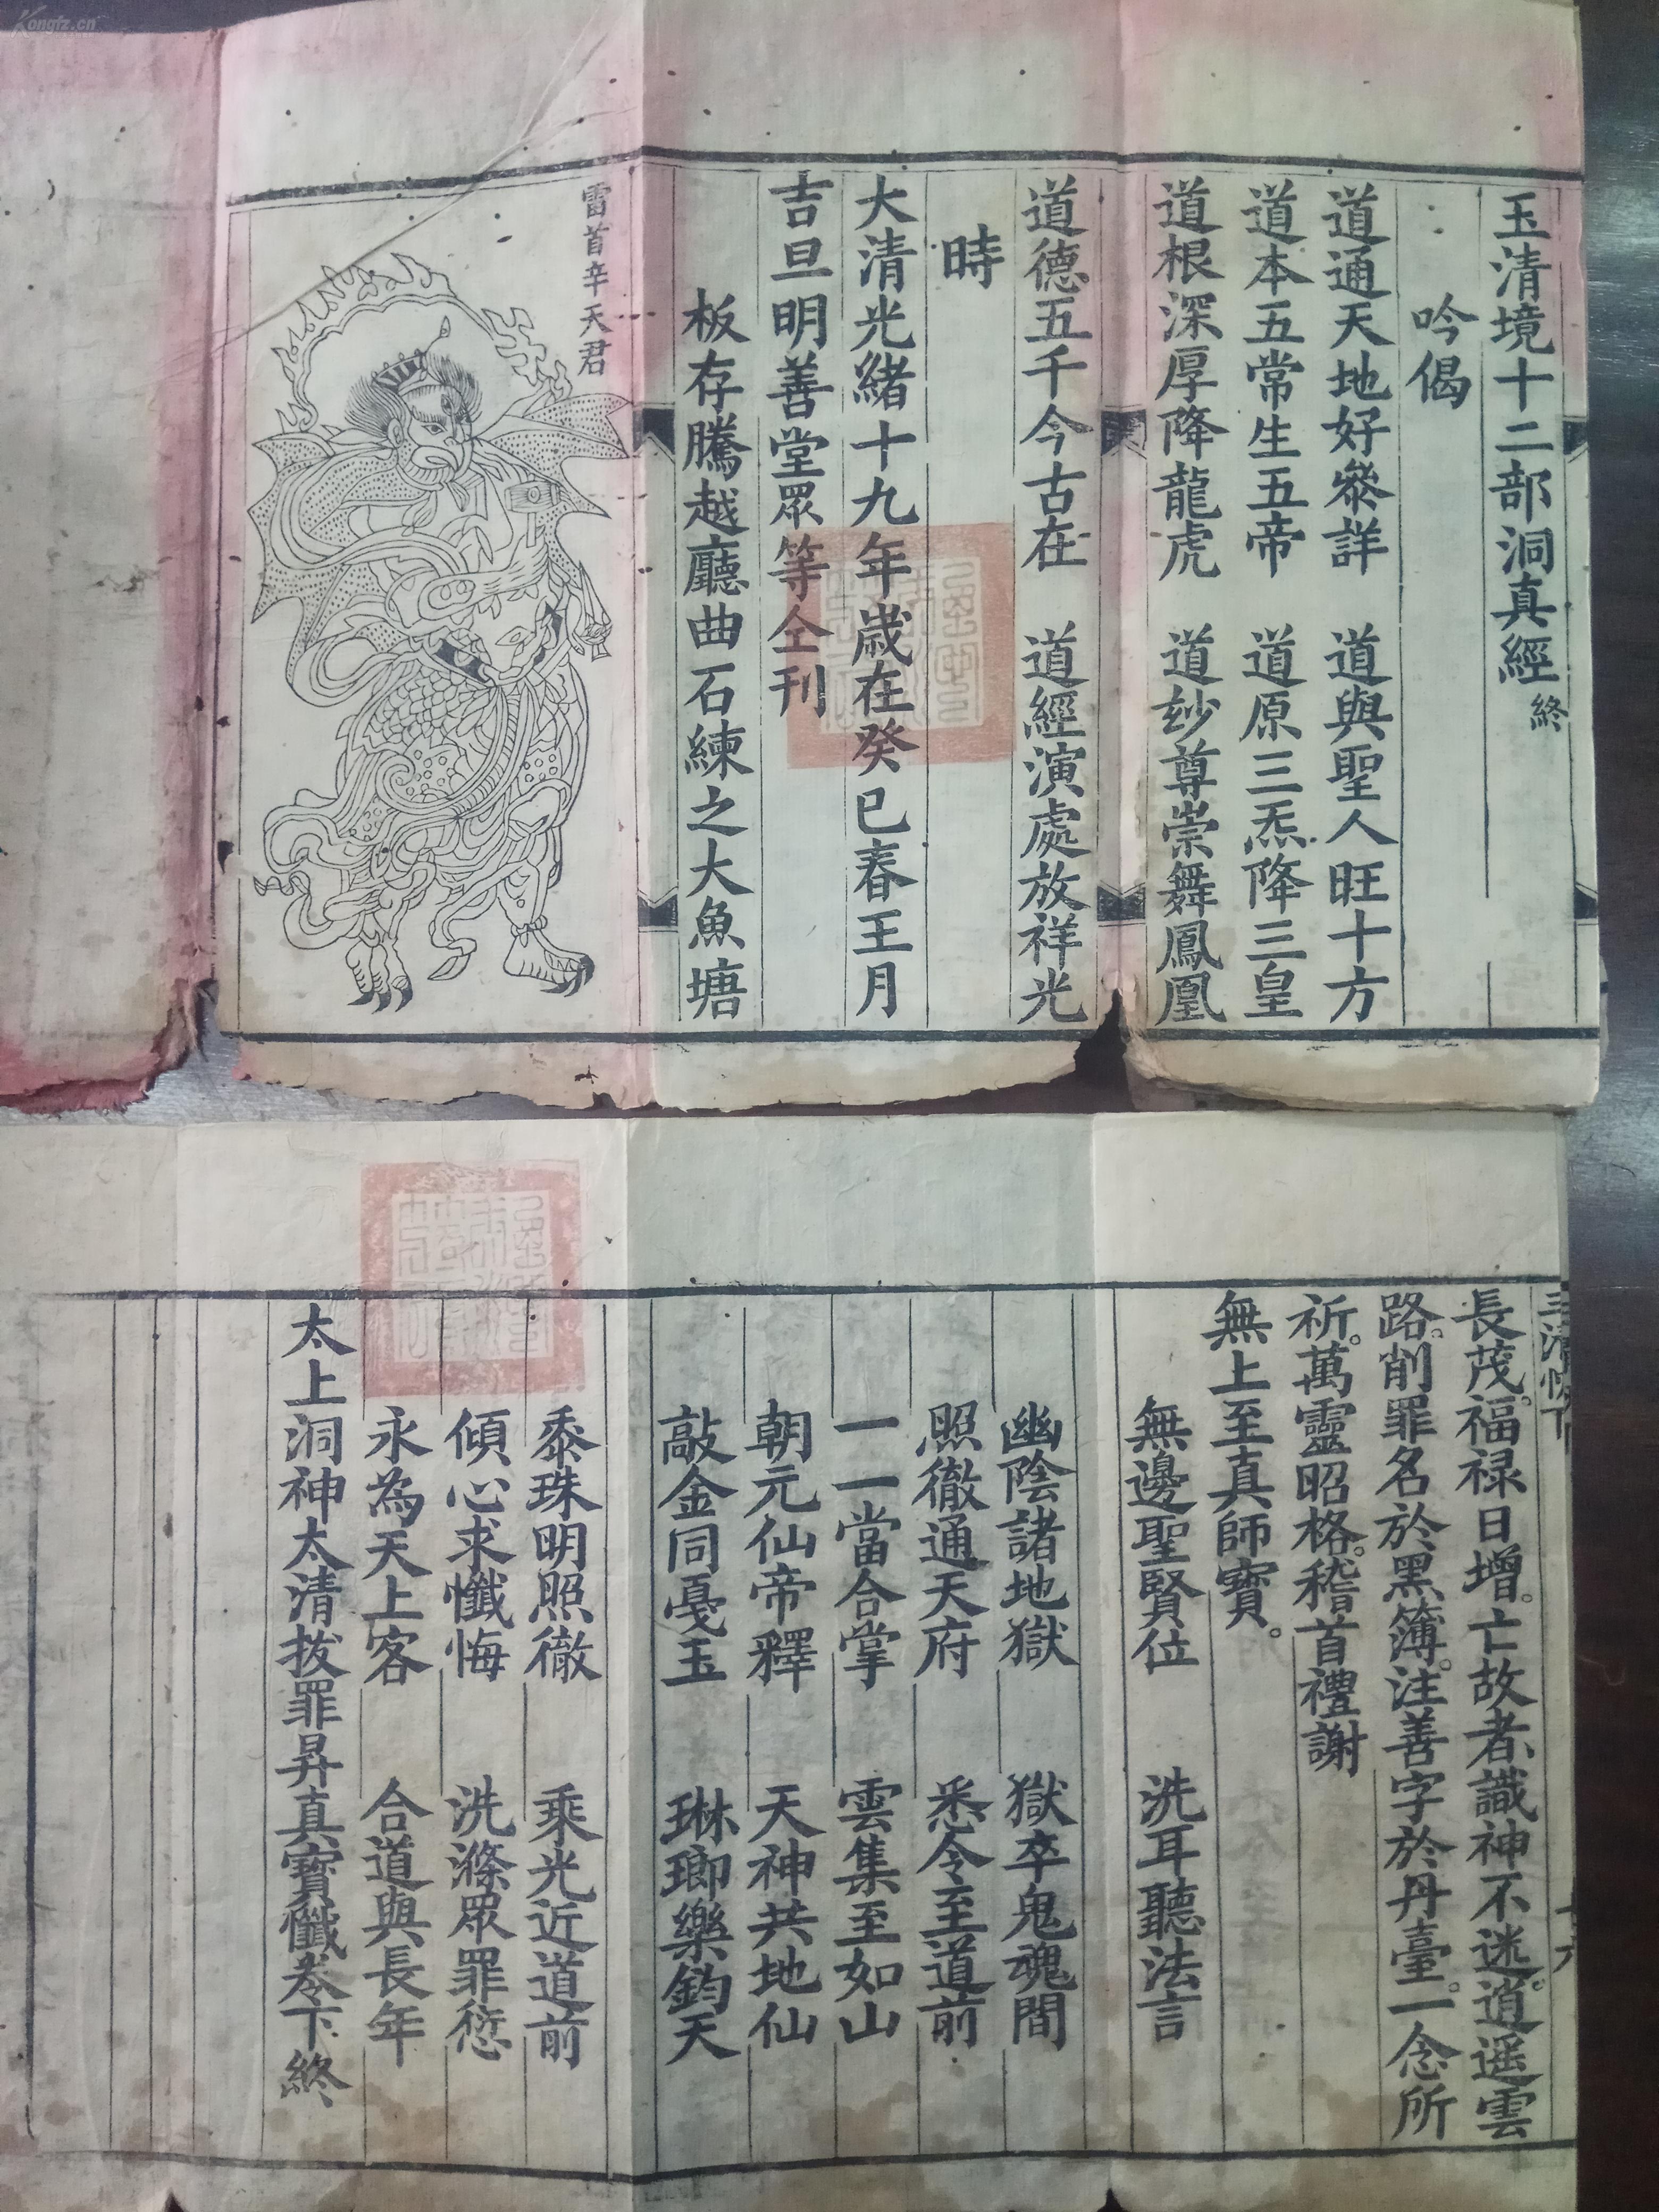 Kongfz.cn
玉清境十二部洞真經終
吟偈
道通天地好叅詳　道與聖人旺十方
道本五常生五帝　道原三炁降三皇
道根深厚降龍虎　道玅尊崇舞鳳凰
道德五千今古在　道經演處放祥光
時
大清光緒十九年歲在癸巳春王月
吉旦明善堂眾等仝刊
板存騰越廳曲石練之大魚塘
雷首辛天君
三清懺下
長茂。福禄日增。亡故者識神不迷。逍遥雲
路。削罪名於黑簿。注善字於丹臺。一念所
祈。萬靈昭格。稽首禮謝
無上至真師寶。
無邊聖賢位　洗耳聽法言
幽陰諸地獄　獄卒鬼魂間
照徹通天府　悉令至道前
一一當合掌　雲集至如山
朝元仙帝釋　天神共地仙
敲金同戛玉　琳瑯樂鈞天
黍珠明照徹　乘光近道前
傾心求懺悔　洗滌眾罪愆
永為天上客　合道與長年
太上洞神太清拔罪昇真寶懺卷下終